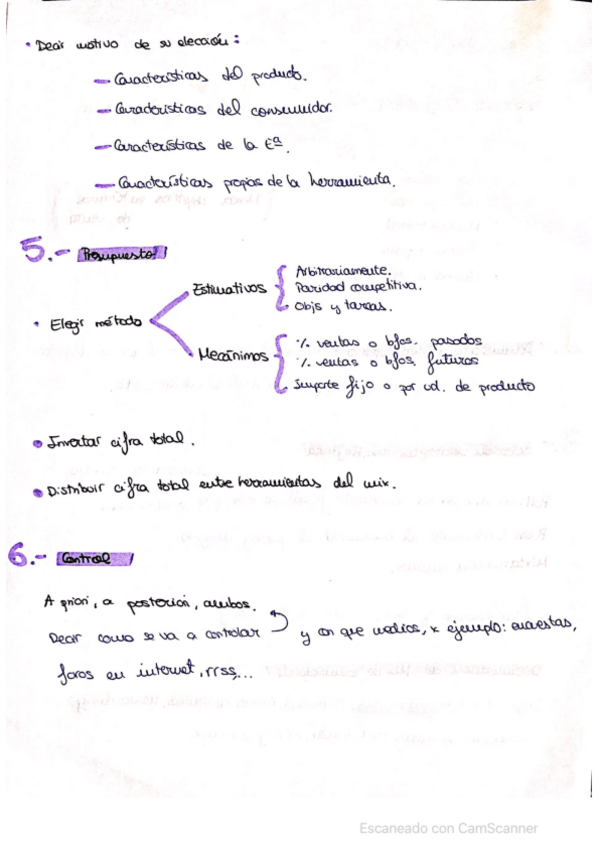 • Decir motivo de su elección:
— Características del producto.
— Características del consumidor.
— Características de la Eª.
— Características propias de la herramienta.
5.- Presupuesto
• Elegir método
Estimativos
Arbitrariamente.
Paridad competitiva.
Objs y tareas.
Mecánimos
% ventas o bfos. pasados
% ventas o bfos. futuros
Importe fijo o por ud. de producto
• Inventar cifra total.
• Distribuir cifra total entre herramientas del mix.
6.- Control
A priori, a posteriori, ambos.
Decir como se va a controlar y con que medios, x ejemplo: encuestas,
foros en internet, rrss,...
Escaneado con CamScanner